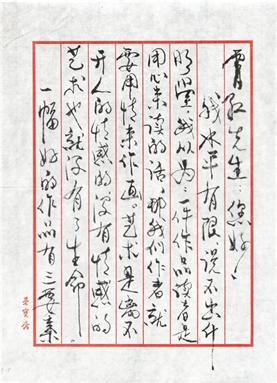 先生：您好！
我水平有限，说不出什
明堂，我以为：一件作品读者是
用心来读的话，那我们作者就
要用情来作画。艺术是离不
开人的情感的没有情感的
艺术也就没有了生命。
一幅好的作品有三要素
荣宝斋